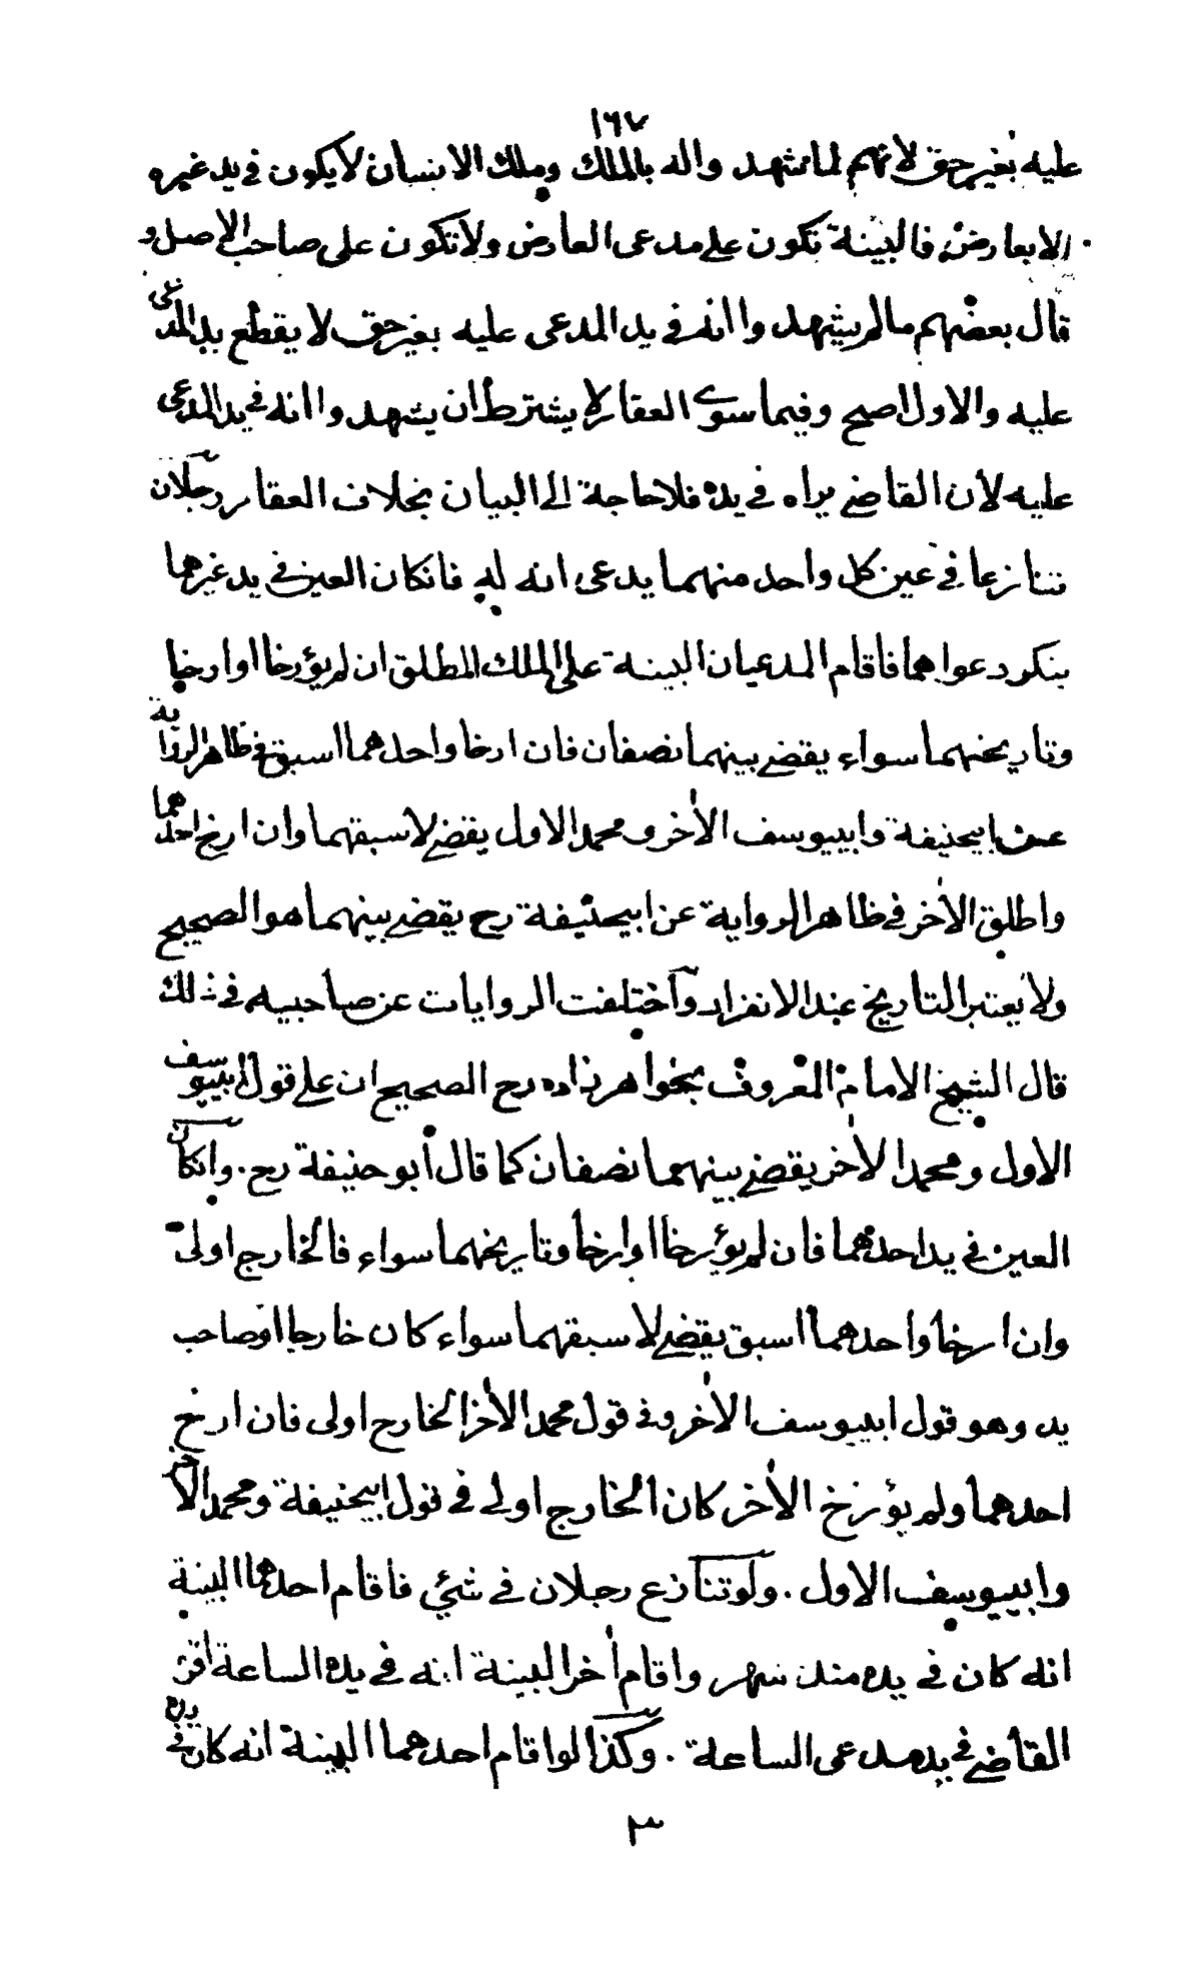 ١٦٧
عليه بغير حق لانهم لما شهدوا له بالملك وملك الانسان لا يكون فى يد غيره
الا بعارض فالبينة تكون على مدعى العارض ولا تكون على صاحب الاصل و
قال بعضهم ما لم يشهدوا انه فى يد المدعى عليه بغير حق لا يقطع يد المدعى
عليه والاول اصح وفيما سوى العقار لا يشترط ان يشهدوا انه فى يد المدعى
عليه لأن القاضى يراه فى يده فلا حاجة الى البيان بخلاف العقار رجلان
تنازعا فى عين كل واحد منهما يدعى انه له فانكان العين فى يد غيرهما
ينكر دعواهما فاقام المدعيان البينة على الملك المطلق ان لم يؤرخا او ارخا
وتاريخهما سواء يقضى بينهما نصفان فان ارخا واحدهما اسبق فى ظاهر الرواية
عن ابيحنيفة وابييوسف الأخر ومحمد الاول يقضى لاسبقهما وان ارخ احدهما
واطلق الأخر فى ظاهر الرواية عن ابيحنيفة رح يقضى بينهما هو الصحيح
ولا يعتبر التاريخ عند الانفراد وآختلفت الروايات عن صاحبيه فى ذلك
قال الشيخ الامام المعروف بخواهرزاده رح الصحيح ان على قول ابييوسف
الاول ومحمد الأخر يقضى بينهما نصفان كما قال أبو حنيفة رح . وانكان
العين فى يد احدهما فان لم يؤرخا او ارخا وتاريخهما سواء فالخارج اولى
وان ارخا واحدهما اسبق يقضى لاسبقهما سواء كان خارجا او صاحب
يد وهو قول ابييوسف الأخر وفى قول محمد الأخر الخارج اولى فان ارخ
احدهما ولم يؤرخ الأخر كان الخارج اولى فى قول ابيحنيفة ومحمد الآخر
وابييوسف الاول . ولو تنازع رجلان فى شئي فاقام احدهما البينة
انه كان فى يده منذ شهر واقام أخر البينة انه فى يده الساعة اقر
القاضى فى يد مدعى الساعة . وكذا لو اقام احدهما البينة انه كان فى يده
٣